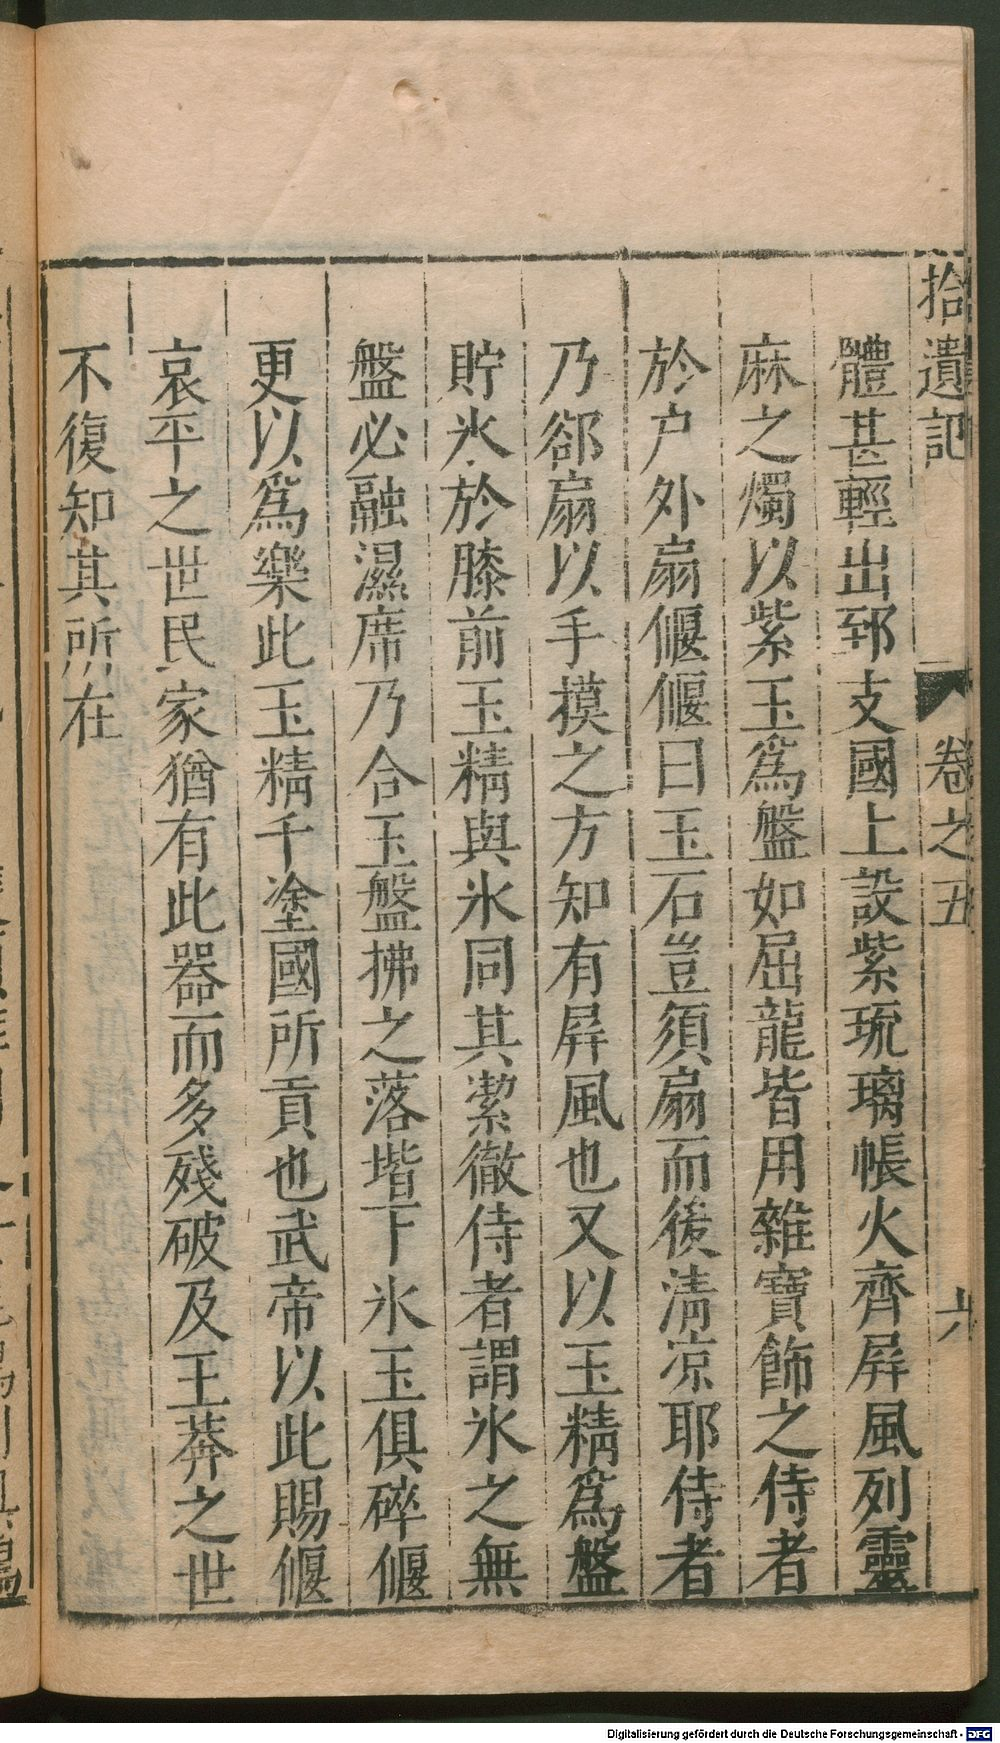 拾遺記
卷之五
六
體甚輕出郅支國上設紫琉璃帳火齊屏風列靈
麻之燭以紫玉爲盤如屈龍皆用雜寶飾之侍者
於户外扇偃偃曰玉石豈須扇而後淸凉耶侍者
乃郤扇以手摸之方知有屏風也又以玉精爲盤
貯氷於膝前玉精與氷同其㓗徹侍者謂氷之無
盤必融濕席乃合玉盤拂之落堦下氷玉俱碎偃
更以爲樂此玉精千塗國所貢也武帝以此賜偃
哀平之世民家猶有此器而多殘破及王莽之世
不復知其所在
Digitalisierung gefördert durch die Deutsche Forschungsgemeinschaft - DFG